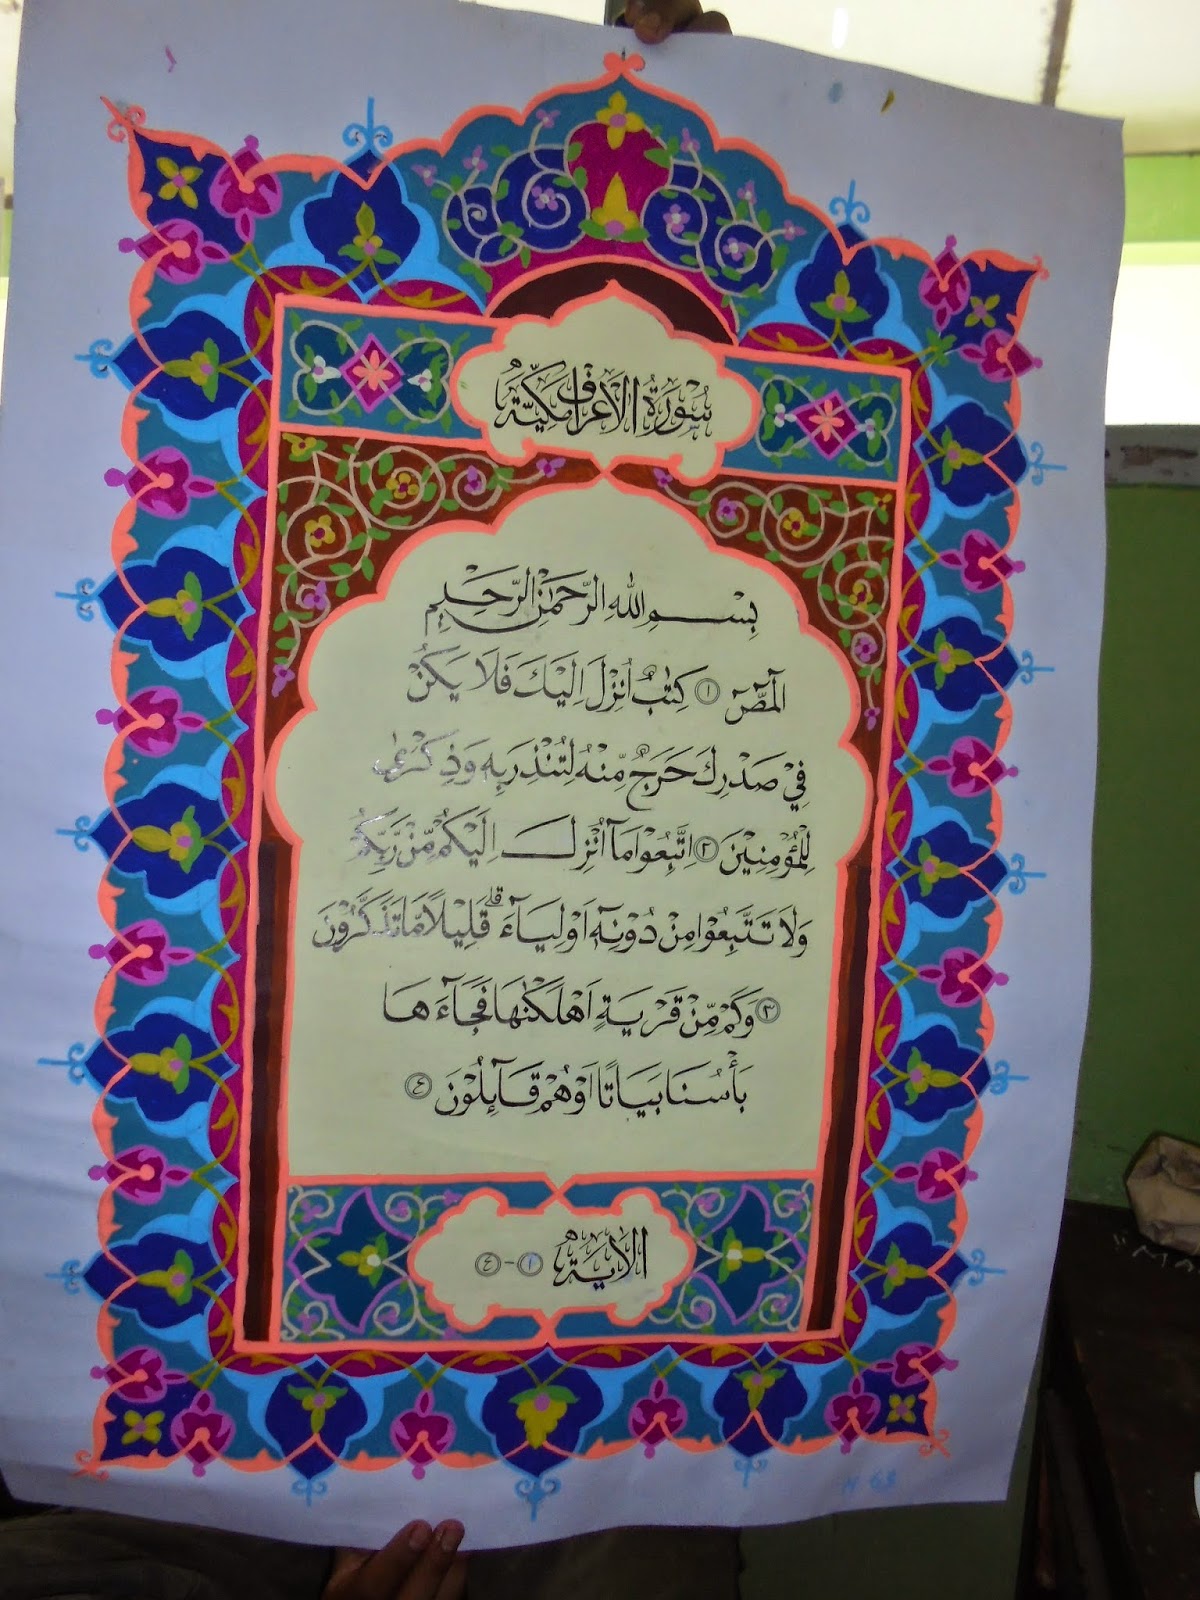 سُوْرَةُ الْاَعْرَافِ مَكِّيَّةٌ
بِسْمِ اللهِ الرَّحْمٰنِ الرَّحِيْمِ
الۤمّۤصۤ ۝١ كِتٰبٌ اُنْزِلَ اِلَيْكَ فَلَا يَكُنْ
فِيْ صَدْرِكَ حَرَجٌ مِّنْهُ لِتُنْذِرَ بِهٖ وَذِكْرٰى
لِلْمُؤْمِنِيْنَ ۝٢ اِتَّبِعُوْا مَآ اُنْزِلَ اِلَيْكُمْ مِّنْ رَّبِّكُمْ
وَلَا تَتَّبِعُوْا مِنْ دُوْنِهٖٓ اَوْلِيَاۤءَۗ قَلِيْلًا مَّا تَذَكَّرُوْنَ
۝٣ وَكَمْ مِّنْ قَرْيَةٍ اَهْلَكْنٰهَا فَجَاۤءَهَا
بَأْسُنَا بَيَاتًا اَوْ هُمْ قَاۤىِٕلُوْنَ ۝٤
الْاٰيَةُ ١-٤